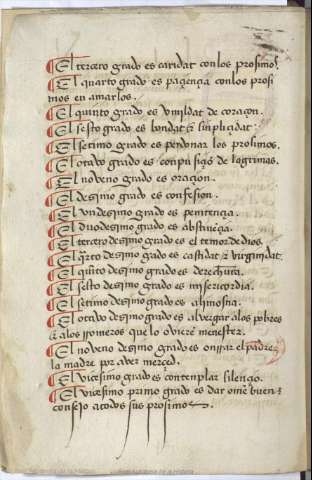 ¶ El tercero grado es caridat con los prosimos
¶ El quarto grado es paçiençia con los prosi
mos en amarlos.
¶ El quinto grado es vmjldat de coraçon.
¶ El sesto grado es bondat & sinpliçidat
¶ El setimo grado es perdonar los prosimos.
¶ El otavo grado es conpusiçion de lagrimas.
¶ El noveno grado es oraçion.
¶ El desimo grado es confesion.
¶ El vndesimo grado es penitençia.
¶ El duodesimo grado es abstinençia.
¶ El tercero desimo grado es el temor de dios.
¶ El qrto desimo grado es castidat & virginidat.
¶ El quinto desimo grado es derechura.
¶ El sesto desimo grado es misericordia.
¶ El setimo desimo grado es almosna.
¶ El otavo desimo grado es alvergar a los pobres
& a los rromeros que lo ovieren menester.
¶ El noveno desimo grado es onrrar el padre
la madre por aber merçed.
¶ El viçesimo grado es contemplar silençio.
¶ El viçesimo primo grado es dar ome buen
consejo a todos sus prosimos.